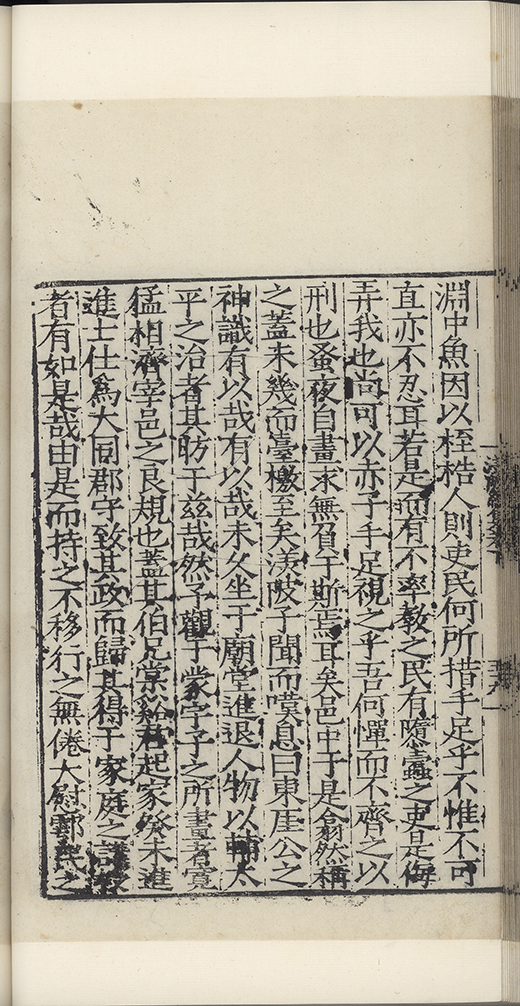 淵中魚因以桎梏人則吏民何所措手足乎不惟不可
直亦不忍耳若是而有不率教之民有隱蠹之吏是侮
弄我也尚可以赤子手足視之乎吾何憚而不齊之以
刑也蚤夜自畫求無負于斯焉耳矣邑中于是翕然稱
之蓋未幾而臺檄至矣渼陂子聞而嘆息曰東厓公之
神識有以哉有以哉未久坐于廟堂進退人物以輔太
平之治者其昉于兹哉然予觀于蒙宇子之所畫者寬
猛相濟宰邑之良規也蓋其伯兄棠谿君起家癸未進
進士仕爲大同郡守致其政而歸其得于家庭之
者有如是哉由是而持之不移行之無倦大慰鄠民之